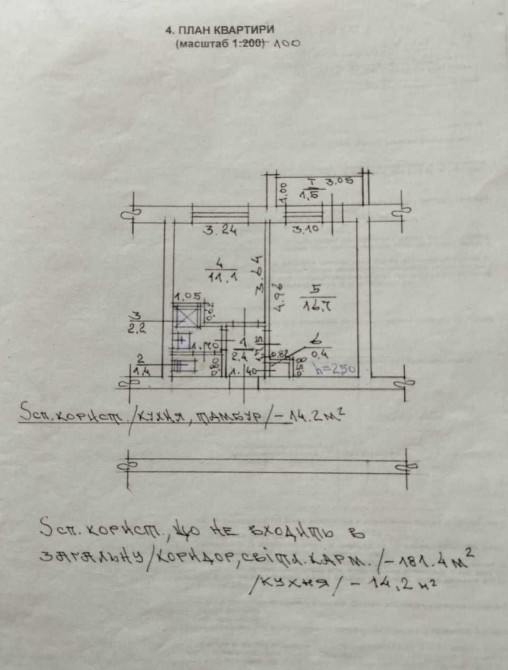 4. ПЛАН КВАРТИРИ
(масштаб 1:200) 100
1.00
Т
1.5
3.05
3.24
3.10
4
11.1
3.64
4.96
5
16.7
1.05
0.62
3
2.2
1
2.4
6
0.4
2
1.4
0.80
1.40
0.58
h=250
Sсп.корист /кухня, тамбур/ - 14.2 м²
Sсп.корист., що не входить в
загальну /коридор, світл.карм./ - 181.4 м²
/кухня/ - 14,2 м²